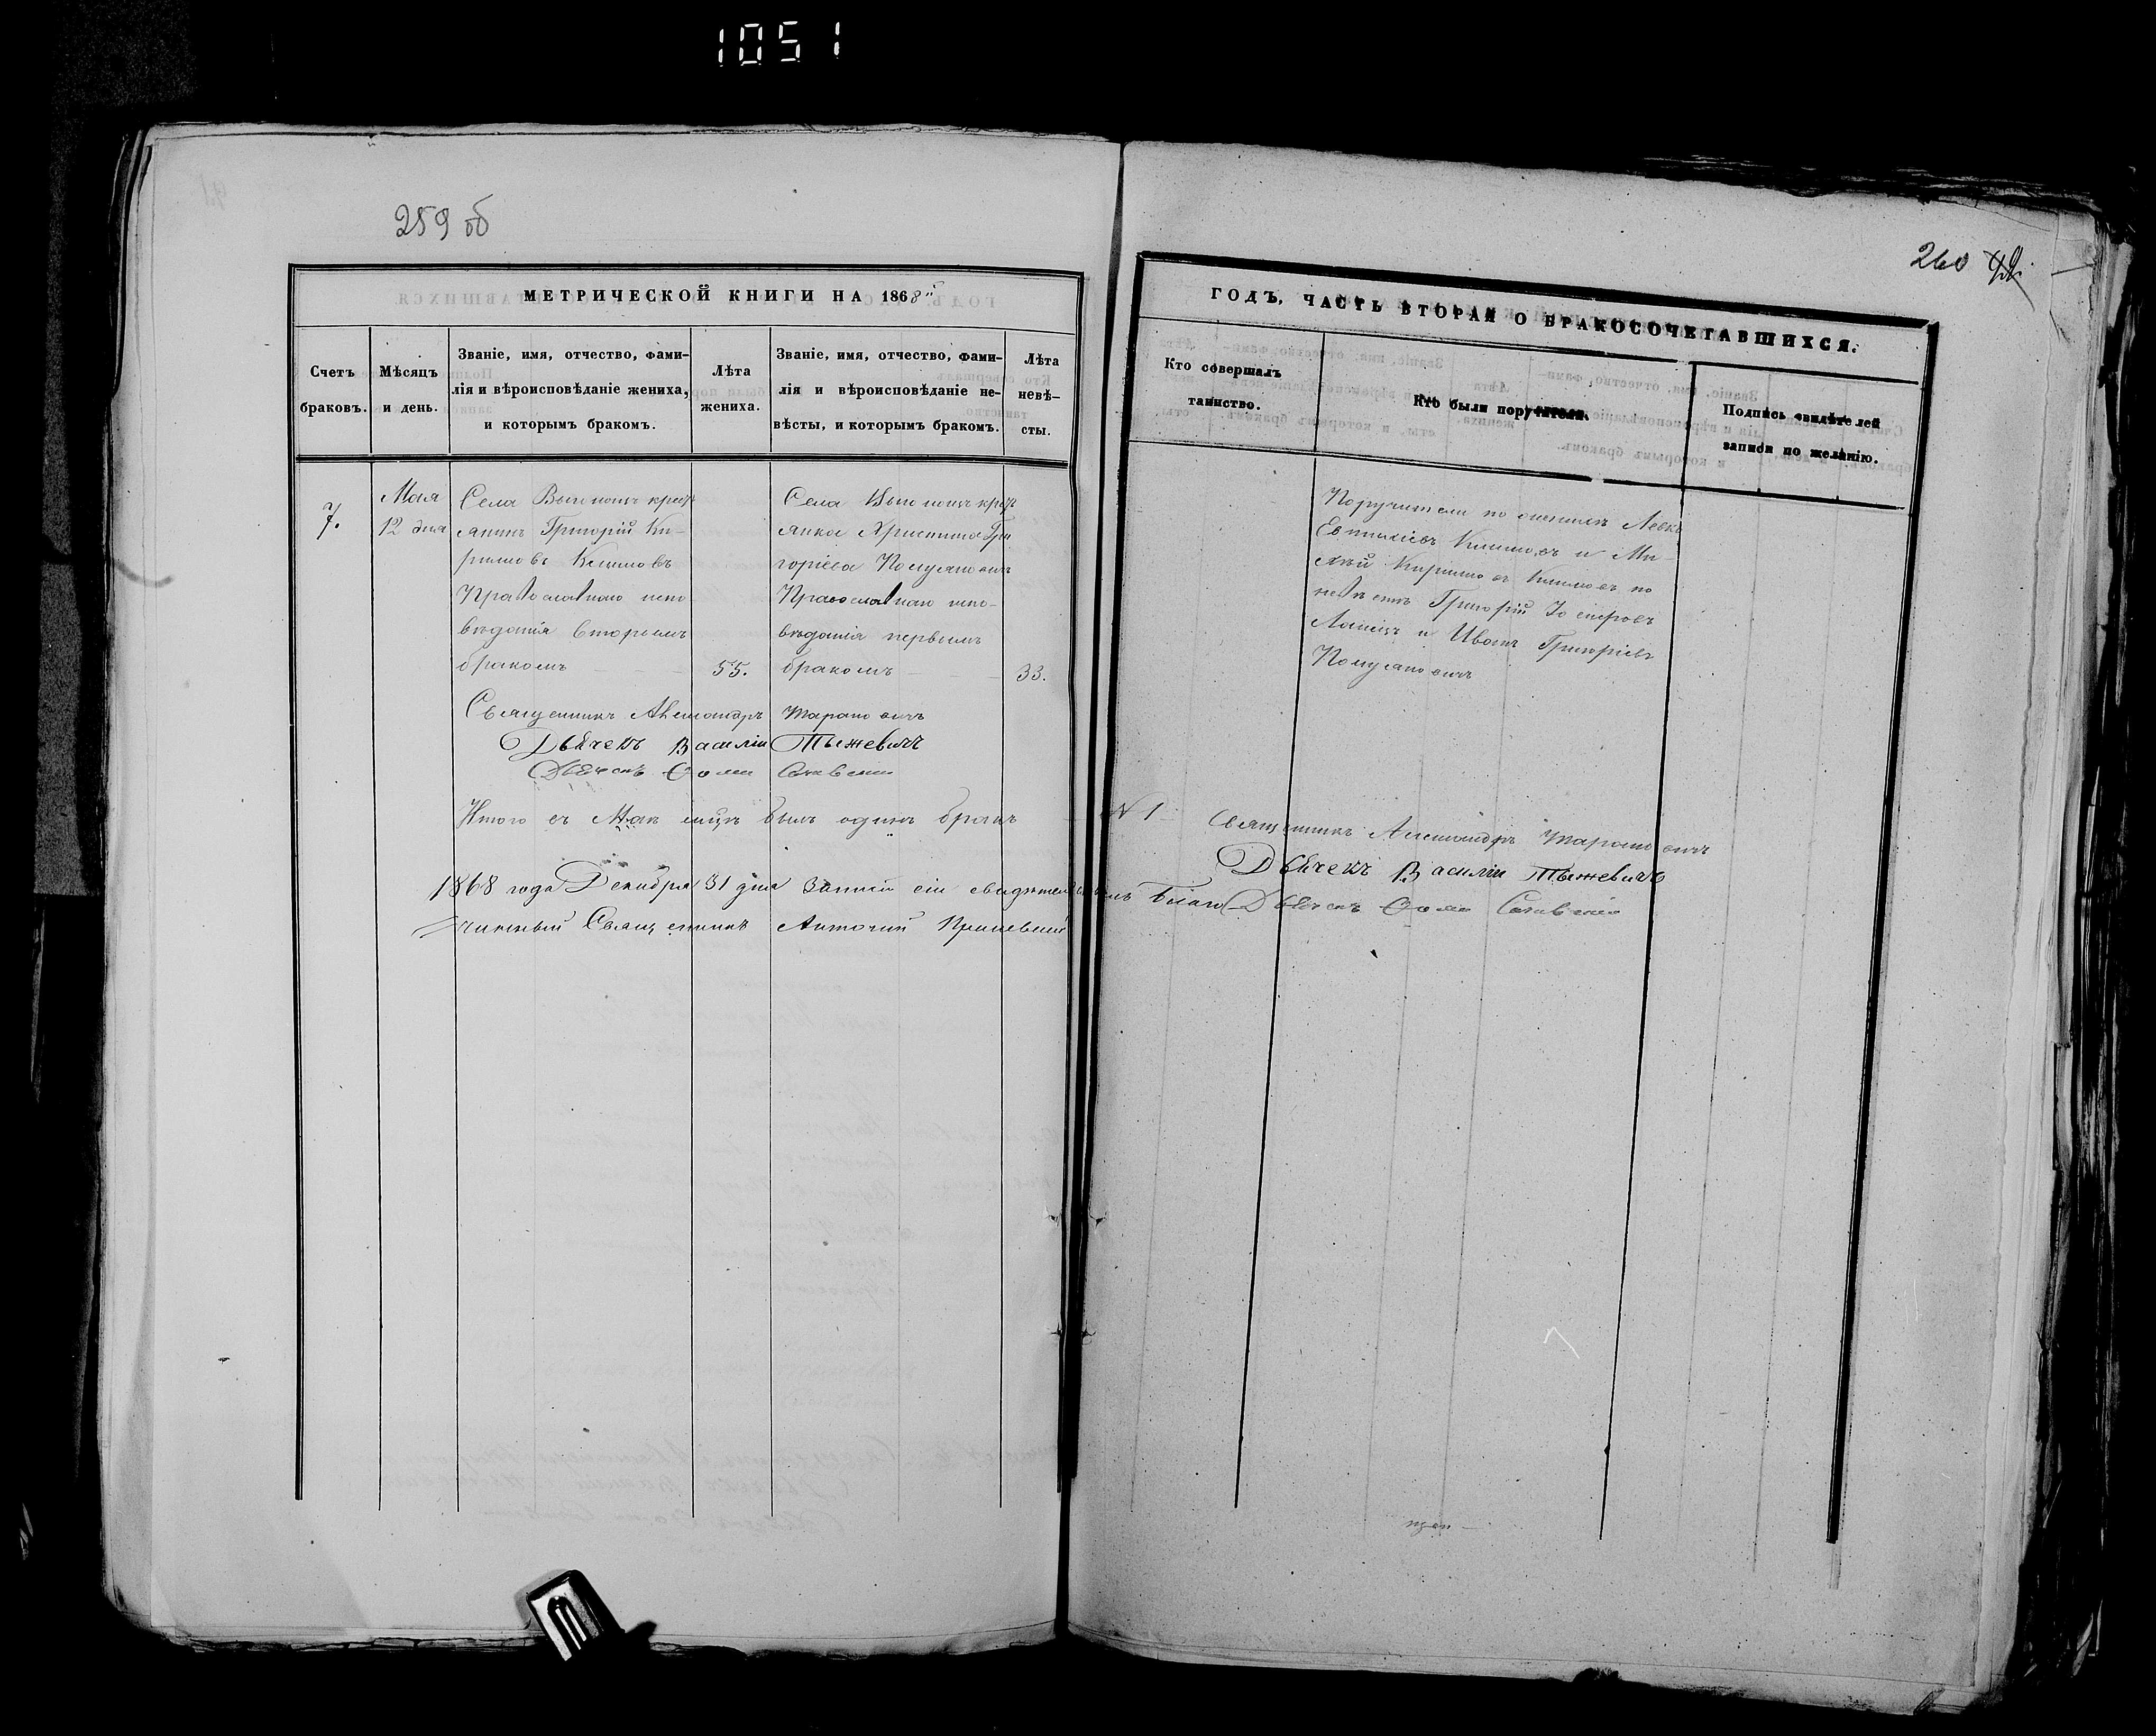 1051
259 об
МЕТРИЧЕСКОЙ КНИГИ НА 1868
Счетъ браковъ.
Мѣсяцъ и день.
Званіе, имя, отчество, фами-
лія и вѣроисповѣданіе жениха,
и которымъ бракомъ.
Лѣта
жениха.
Званіе, имя, отчество, фами-
лія и вѣроисповѣданіе не-
вѣсты, и которымъ бракомъ.
Лѣта
невѣ-
сты.
7.
Мая
12 дня
Села крест
янинъ Григорій Ки-
риловъ Климовъ
Православнаго испо
вѣданія вторымъ
бракомъ
55.
Села крест
янка Христина Гри
горіева
Православнаго испо-
вѣданія первымъ
бракомъ
33.
Священникъ Александръ Тарановичъ
Дьячекъ Василій Тыжевичъ
Дьячекъ Ѳома
Итого въ Маѣ м-цѣ былъ одинъ бракъ № 1
1868 года Декабря 31 дня записи сіи свидѣтельствовалъ Благо
чинный Священникъ Антоній
260
ГОДЪ, ЧАСТЬ ВТОРАЯ О БРАКОСОЧЕТАВШИХСЯ.
Кто совершалъ
таинство.
Кто были поручители.
Подпись свидѣтелей
записи по желанію.
Поручители по женихѣ Левко
Евтихіевъ Климовъ и Ми-
хей Кириловъ Климовъ по
невѣстѣ Григорій
и Иванъ Григоріевъ
Священникъ Александръ Тарановичъ
Дьячекъ Василій Тыжевичъ
Дьячекъ Ѳома